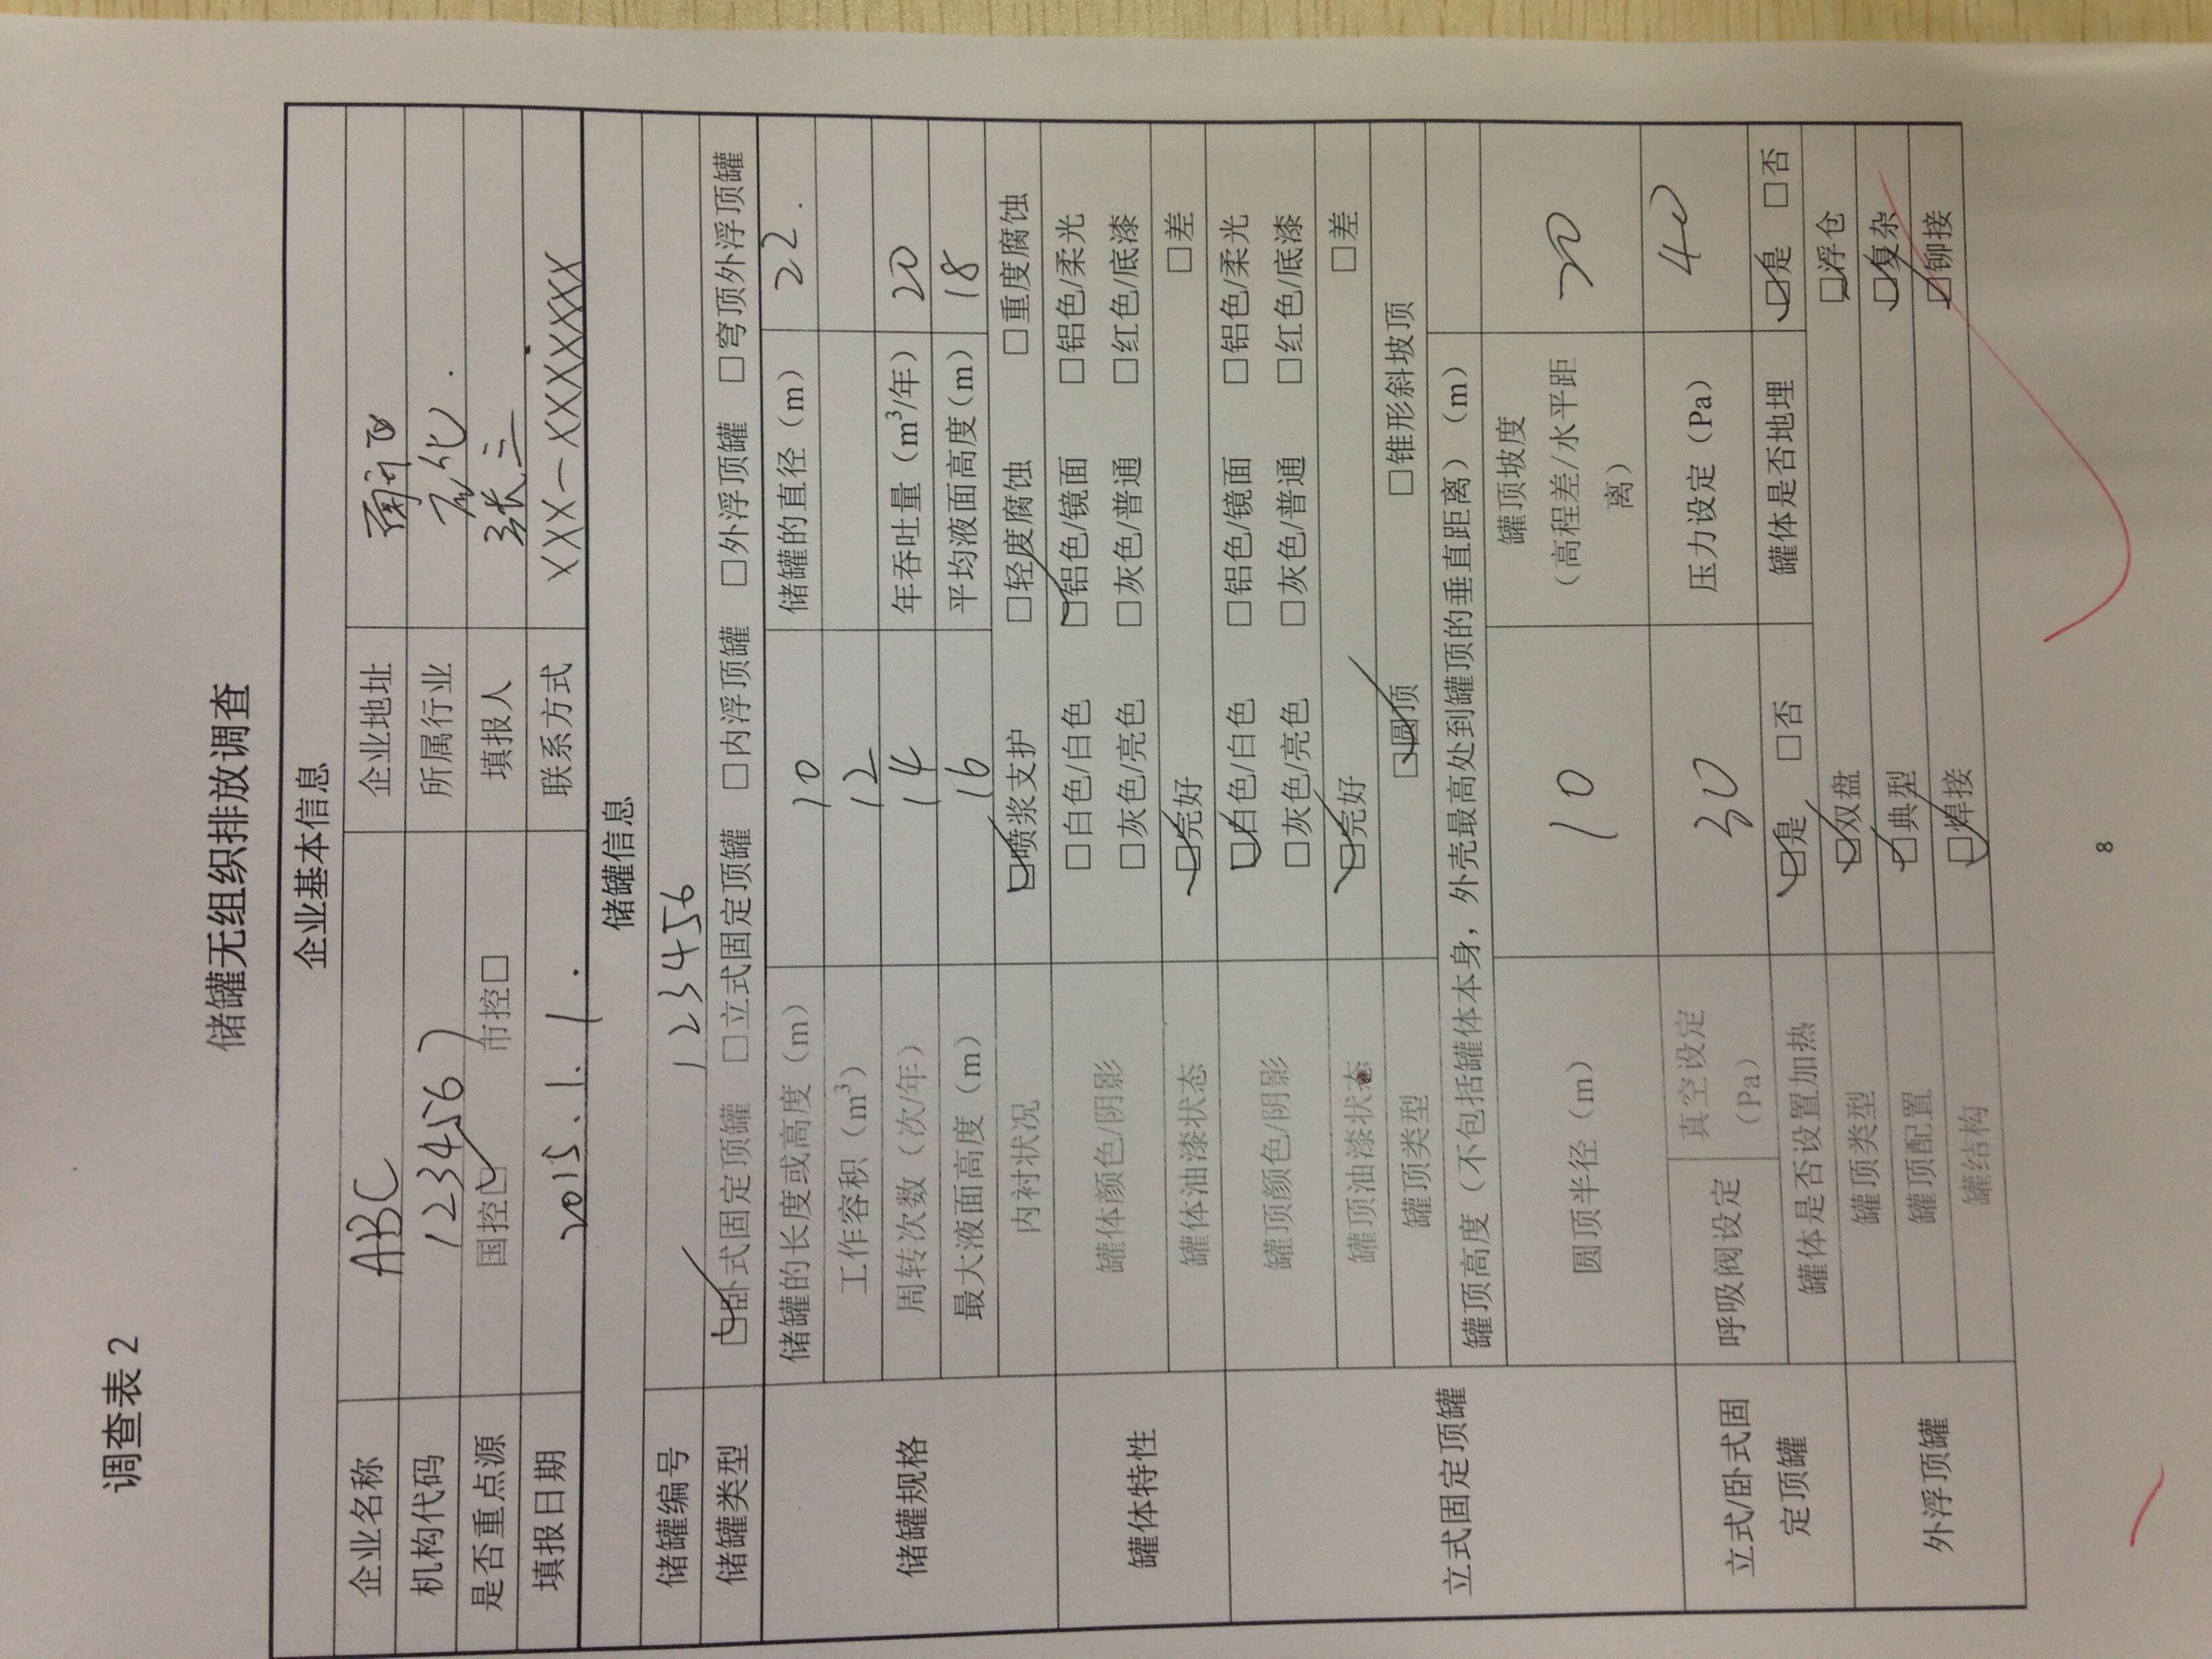 调查表 2
储罐无组织排放调查
企业基本信息
企业名称 ABC 企业地址
机构代码 1234567 所属行业 石化.
是否重点源 国控☑ 市控□ 填报人 张三
填报日期 2015.1.1. 联系方式 XXX-XXXXXXXX
储罐信息
储罐编号 123456
储罐类型 ☑卧式固定顶罐 □立式固定顶罐 □内浮顶罐 □外浮顶罐 □穹顶外浮顶罐
储罐规格
储罐的长度或高度（m） 10 储罐的直径（m） 22.
工作容积（m³） 12
周转次数（次/年） 14 年吞吐量（m³/年） 20
最大液面高度（m） 16 平均液面高度（m） 18
内衬状况 ☑喷浆支护 □轻度腐蚀 □重度腐蚀
罐体特性
罐体颜色/阴影 □白色/白色 ☑铝色/镜面 □铝色/柔光
□灰色/亮色 □灰色/普通 □红色/底漆
罐体油漆状态 ☑完好 □差
立式固定顶罐
罐顶颜色/阴影 ☑白色/白色 □铝色/镜面 □铝色/柔光
□灰色/亮色 □灰色/普通 □红色/底漆
罐顶油漆状态 ☑完好 □差
罐顶类型 ☑圆顶 □锥形斜坡顶
罐顶高度（不包括罐体本身，外壳最高处到罐顶的垂直距离）（m）
圆顶半径（m） 10 罐顶坡度
（高程差/水平距
离） 20
立式/卧式固
定顶罐
呼吸阀设定 真空设定
（Pa） 30 压力设定（Pa） 40
罐体是否设置加热 ☑是 □否 罐体是否地埋 ☑是 □否
外浮顶罐
罐顶类型 ☑双盘 ☑浮仓
罐顶配置 ☑典型 ☑复杂
罐结构 ☑焊接 ☑铆接
8